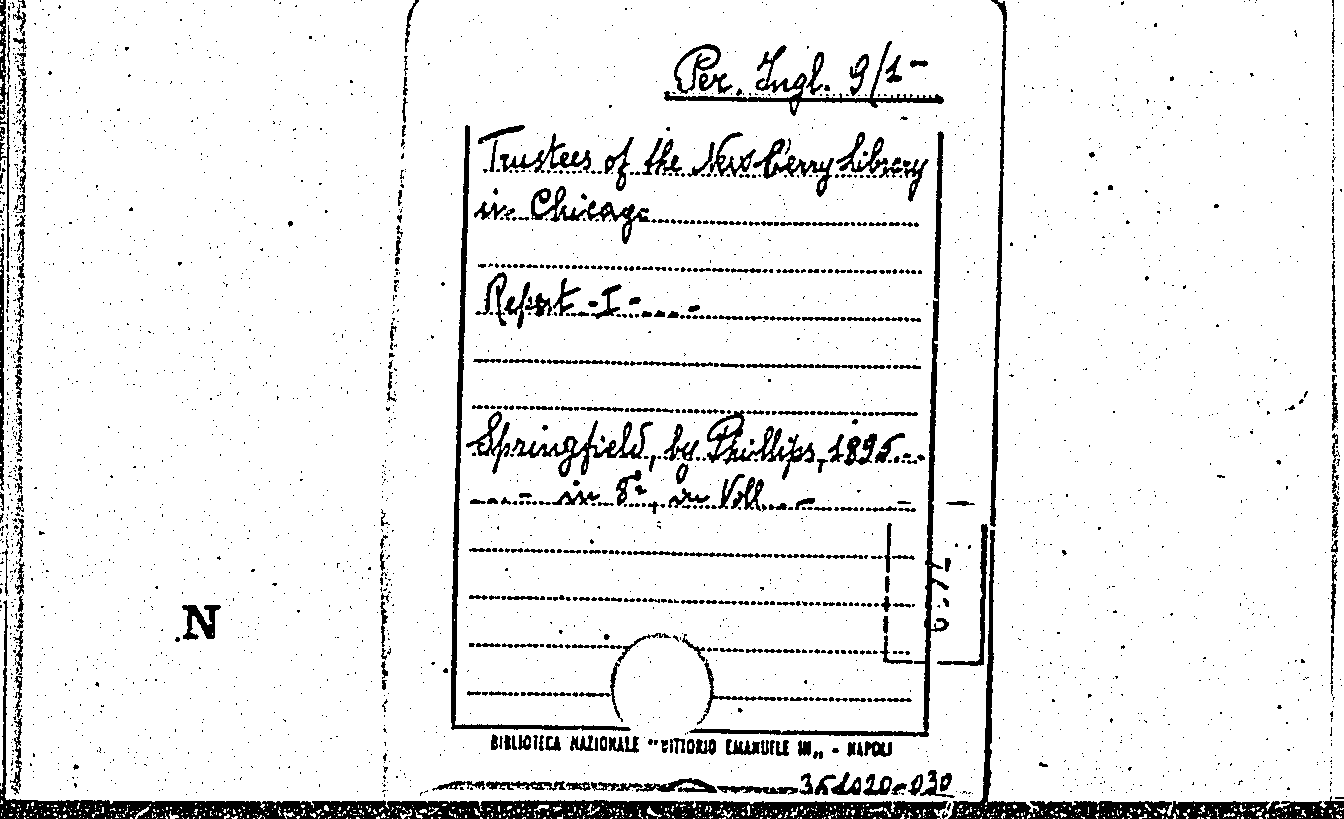 Per. Ingl. 9/1-
Trustees of the New-berry Library
in Chicago
Report - I - ....-
Springfield, by Phillips, 1895...
....- in 8º, in Voll...-
N
BIBLIOTECA NAZIONALE "VITTORIO EMANUELE III„ - NAPOLI